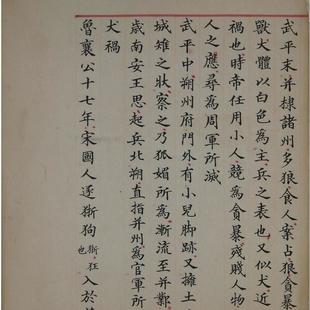 武平末并棣諸州多狼食人案占狼貪暴
獸犬體以白色爲主兵之表也又似犬近
禍也時帝任用小人競爲貪暴殘賤人物
人之應尋爲周軍所滅
武平中朔州府門外有小兒脚跡又擁土
城雉之狀察之乃狐媚所爲漸流至并鄴
歲南安王思起兵北朔直指并州爲官軍所
犬禍
魯襄公十七年宋國人逐狾狗狾狂也入於